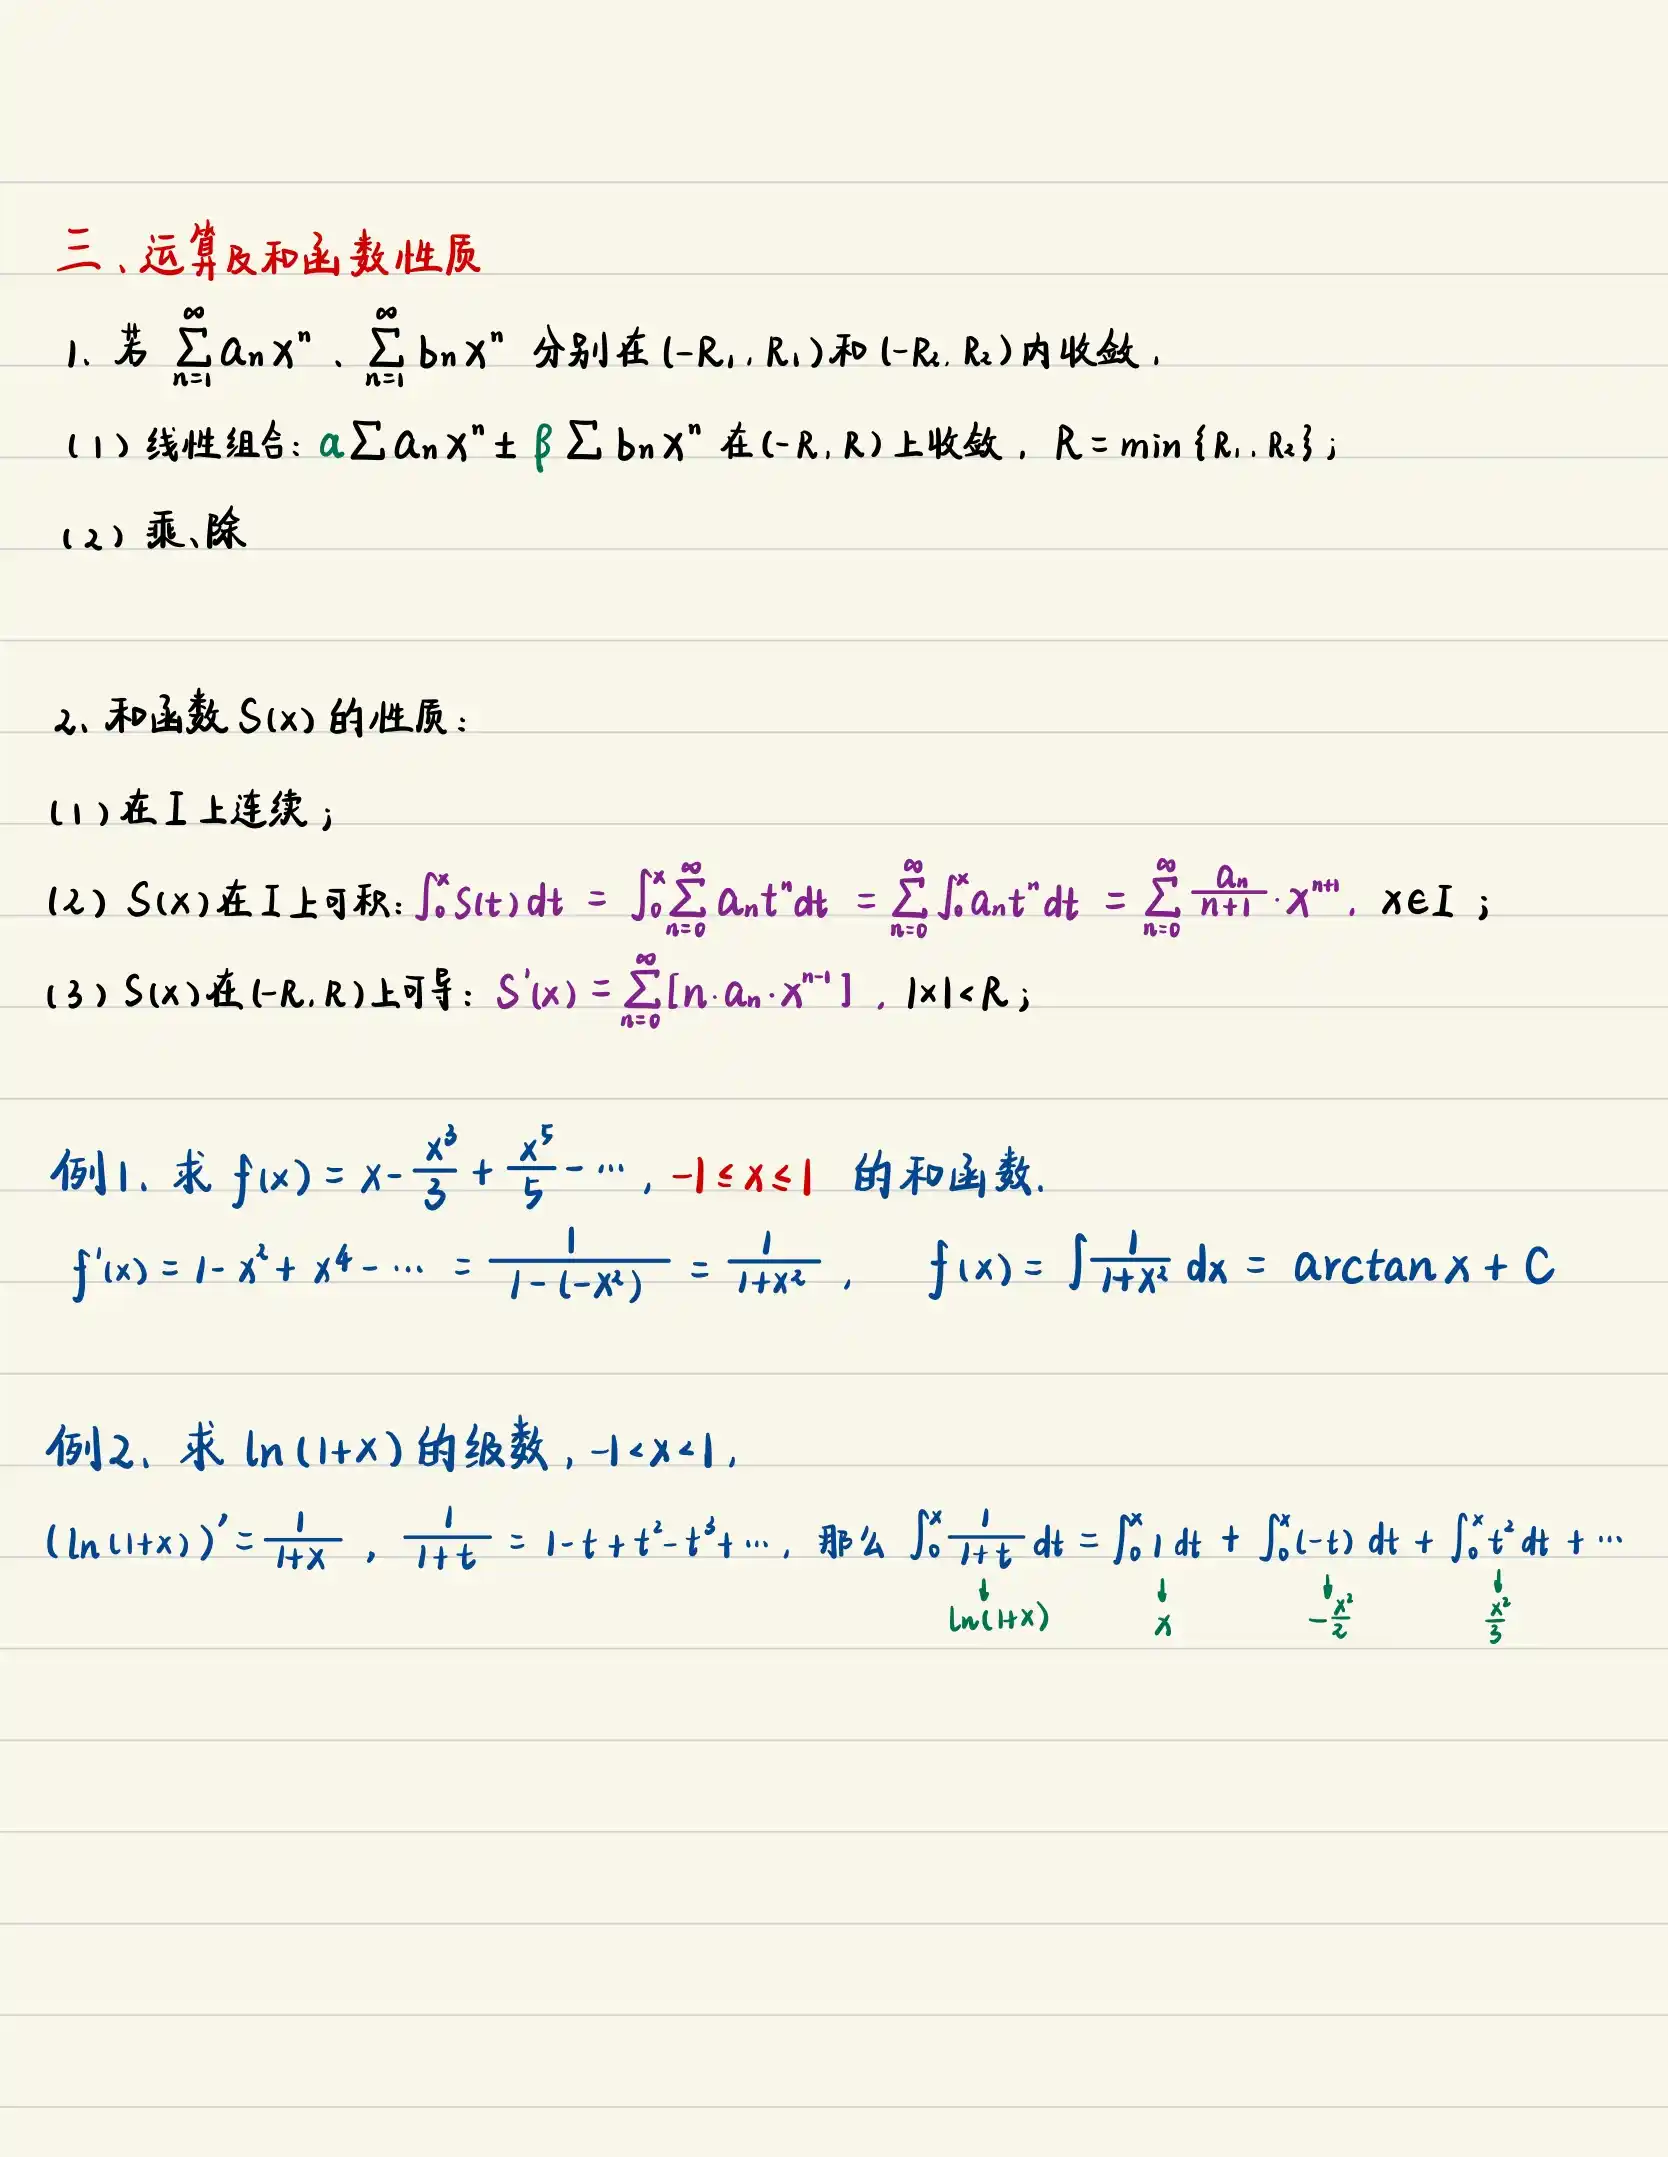 三、运算及和函数性质
1、若 $\sum_{n=1}^{\infty} a_n x^n$、$\sum_{n=1}^{\infty} b_n x^n$ 分别在 (-R₁, R₁) 和 (-R₂, R₂) 内收敛,
(1) 线性组合: $\alpha \sum a_n x^n \pm \beta \sum b_n x^n$ 在 (-R, R) 上收敛, R = min {R₁, R₂};
(2) 乘、除
2、和函数 S(x) 的性质:
(1) 在 I 上连续;
(2) S(x) 在 I 上可积: $\int_0^x S(t) dt = \int_0^x \sum_{n=0}^{\infty} a_n t^n dt = \sum_{n=0}^{\infty} \int_0^x a_n t^n dt = \sum_{n=0}^{\infty} \frac{a_n}{n+1} \cdot x^{n+1}$, x∈I ;
(3) S(x) 在 (-R, R) 上可导: $S'(x) = \sum_{n=0}^{\infty} [n \cdot a_n \cdot x^{n-1}]$, |x|<R ;
例1、求 $f(x) = x - \frac{x^3}{3} + \frac{x^5}{5} - \cdots$, -1≤x≤1 的和函数.
$f'(x) = 1 - x^2 + x^4 - \cdots = \frac{1}{1-(-x^2)} = \frac{1}{1+x^2}$, $f(x) = \int \frac{1}{1+x^2} dx = \arctan x + C$
例2、求 ln(1+x) 的级数, -1<x<1,
$(\ln(1+x))' = \frac{1}{1+x}$, $\frac{1}{1+t} = 1 - t + t^2 - t^3 + \cdots$, 那么 $\int_0^x \frac{1}{1+t} dt = \int_0^x 1 dt + \int_0^x (-t) dt + \int_0^x t^2 dt + \cdots$
↓ ↓ ↓ ↓
$\ln(1+x)$ $x$ $-\frac{x^2}{2}$ $\frac{x^2}{3}$